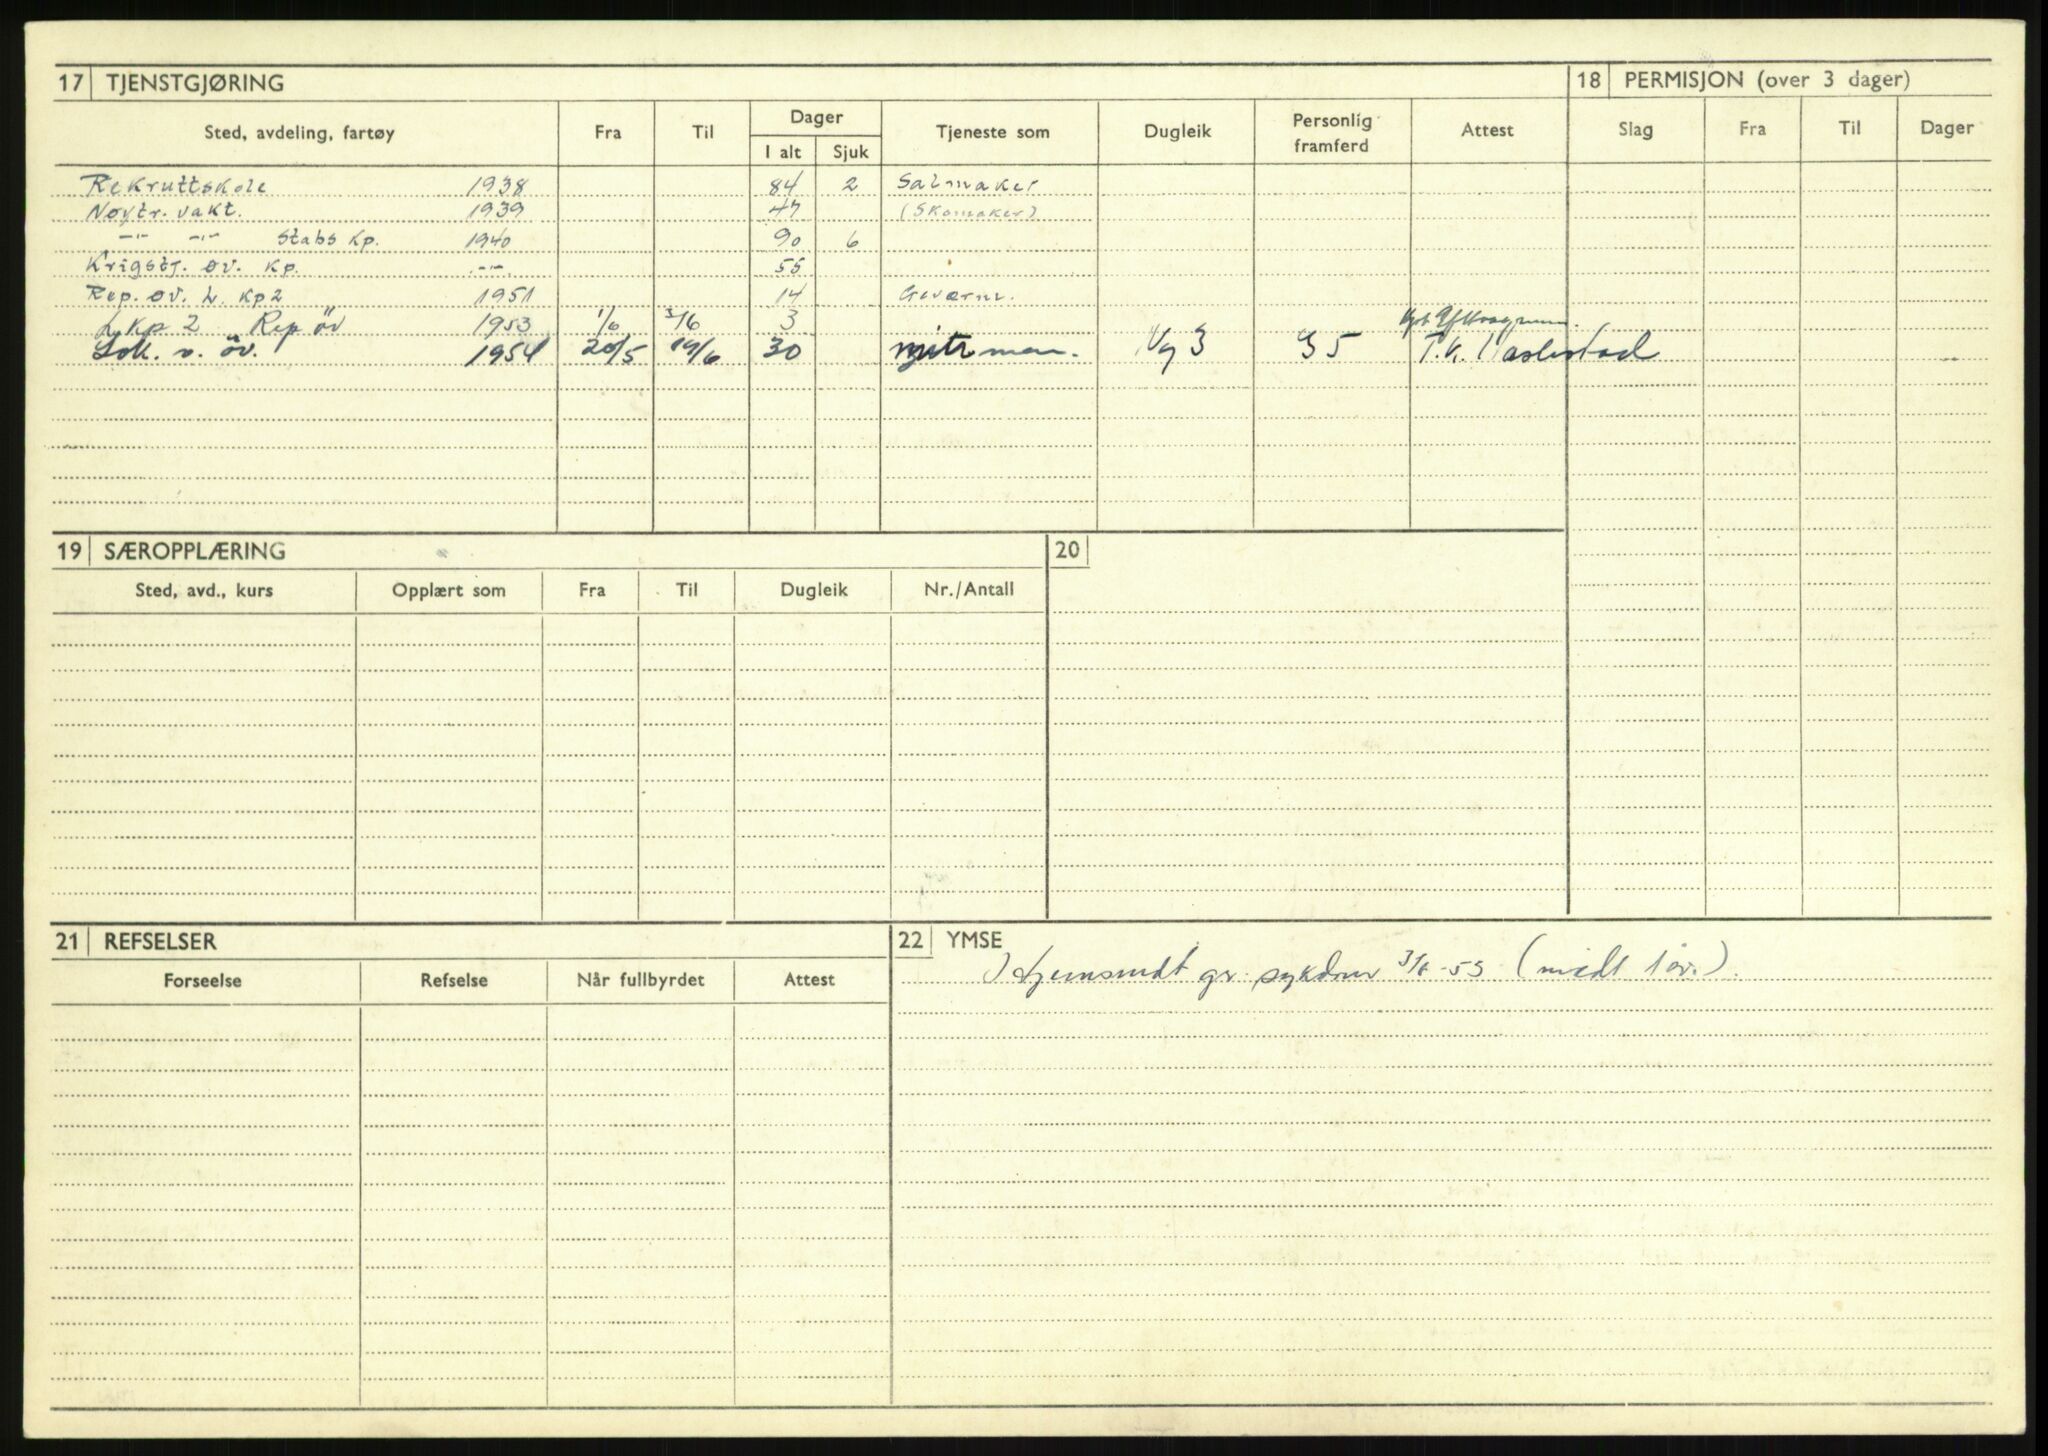 17 TJENSTGJØRING 18 PERMISJON (over 3 dager)
Sted, avdeling, fartøy Fra Til Dager Tjeneste som Dugleik Personlig framferd Attest Slag Fra Til Dager
I alt Sjuk
Rekruttskole 1938 84 2 Salmaker
Nøytr. vakt. 1939 47 (Skomaker)
-"- -"- Stabs Kp. 1940 90 6
Krigstj. øv. Kp. -"- 55
Rep. øv. L. Kp 2 1951 14 Geværm.
L Kp 2 Rep öv 1953 1/6 3/6 3
Lok. v. öv. 1954 20/5 19/6 30 mitr man. Ug 3 S 5 T. K.
19 SÆROPPLÆRING 20
Sted, avd., kurs Opplært som Fra Til Dugleik Nr./Antall
21 REFSELSER 22 YMSE
Forseelse Refselse Når fullbyrdet Attest
Hjemsendt gr. sykdom 3/6-53 (midt i øv.).